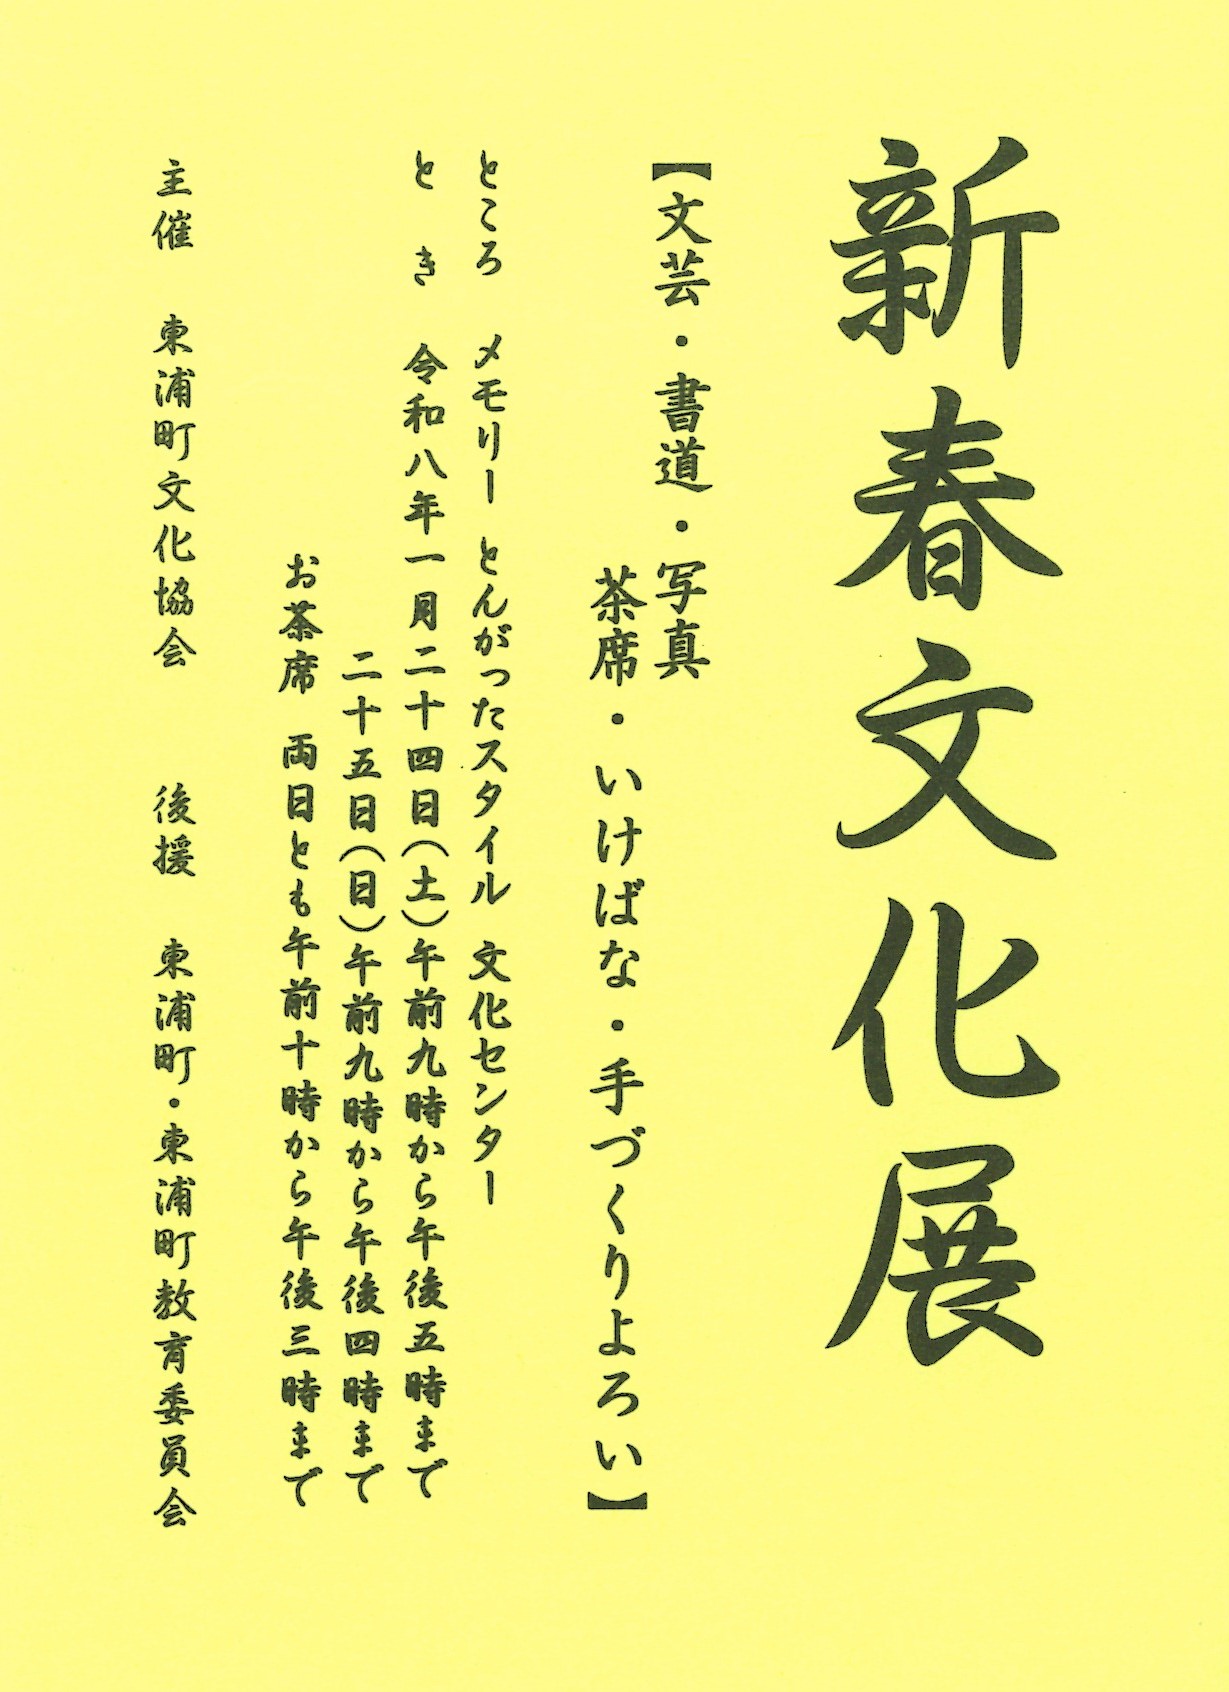 新春文化展
【文芸・書道・写真
茶席・いけばな・手づくりよろい】
ところ メモリー とんがったスタイル 文化センター
と き 令和八年一月二十四日(土)午前九時から午後五時まで
二十五日(日)午前九時から午後四時まで
お茶席 両日とも午前十時から午後三時まで
主催 東浦町文化協会 後援 東浦町・東浦町教育委員会